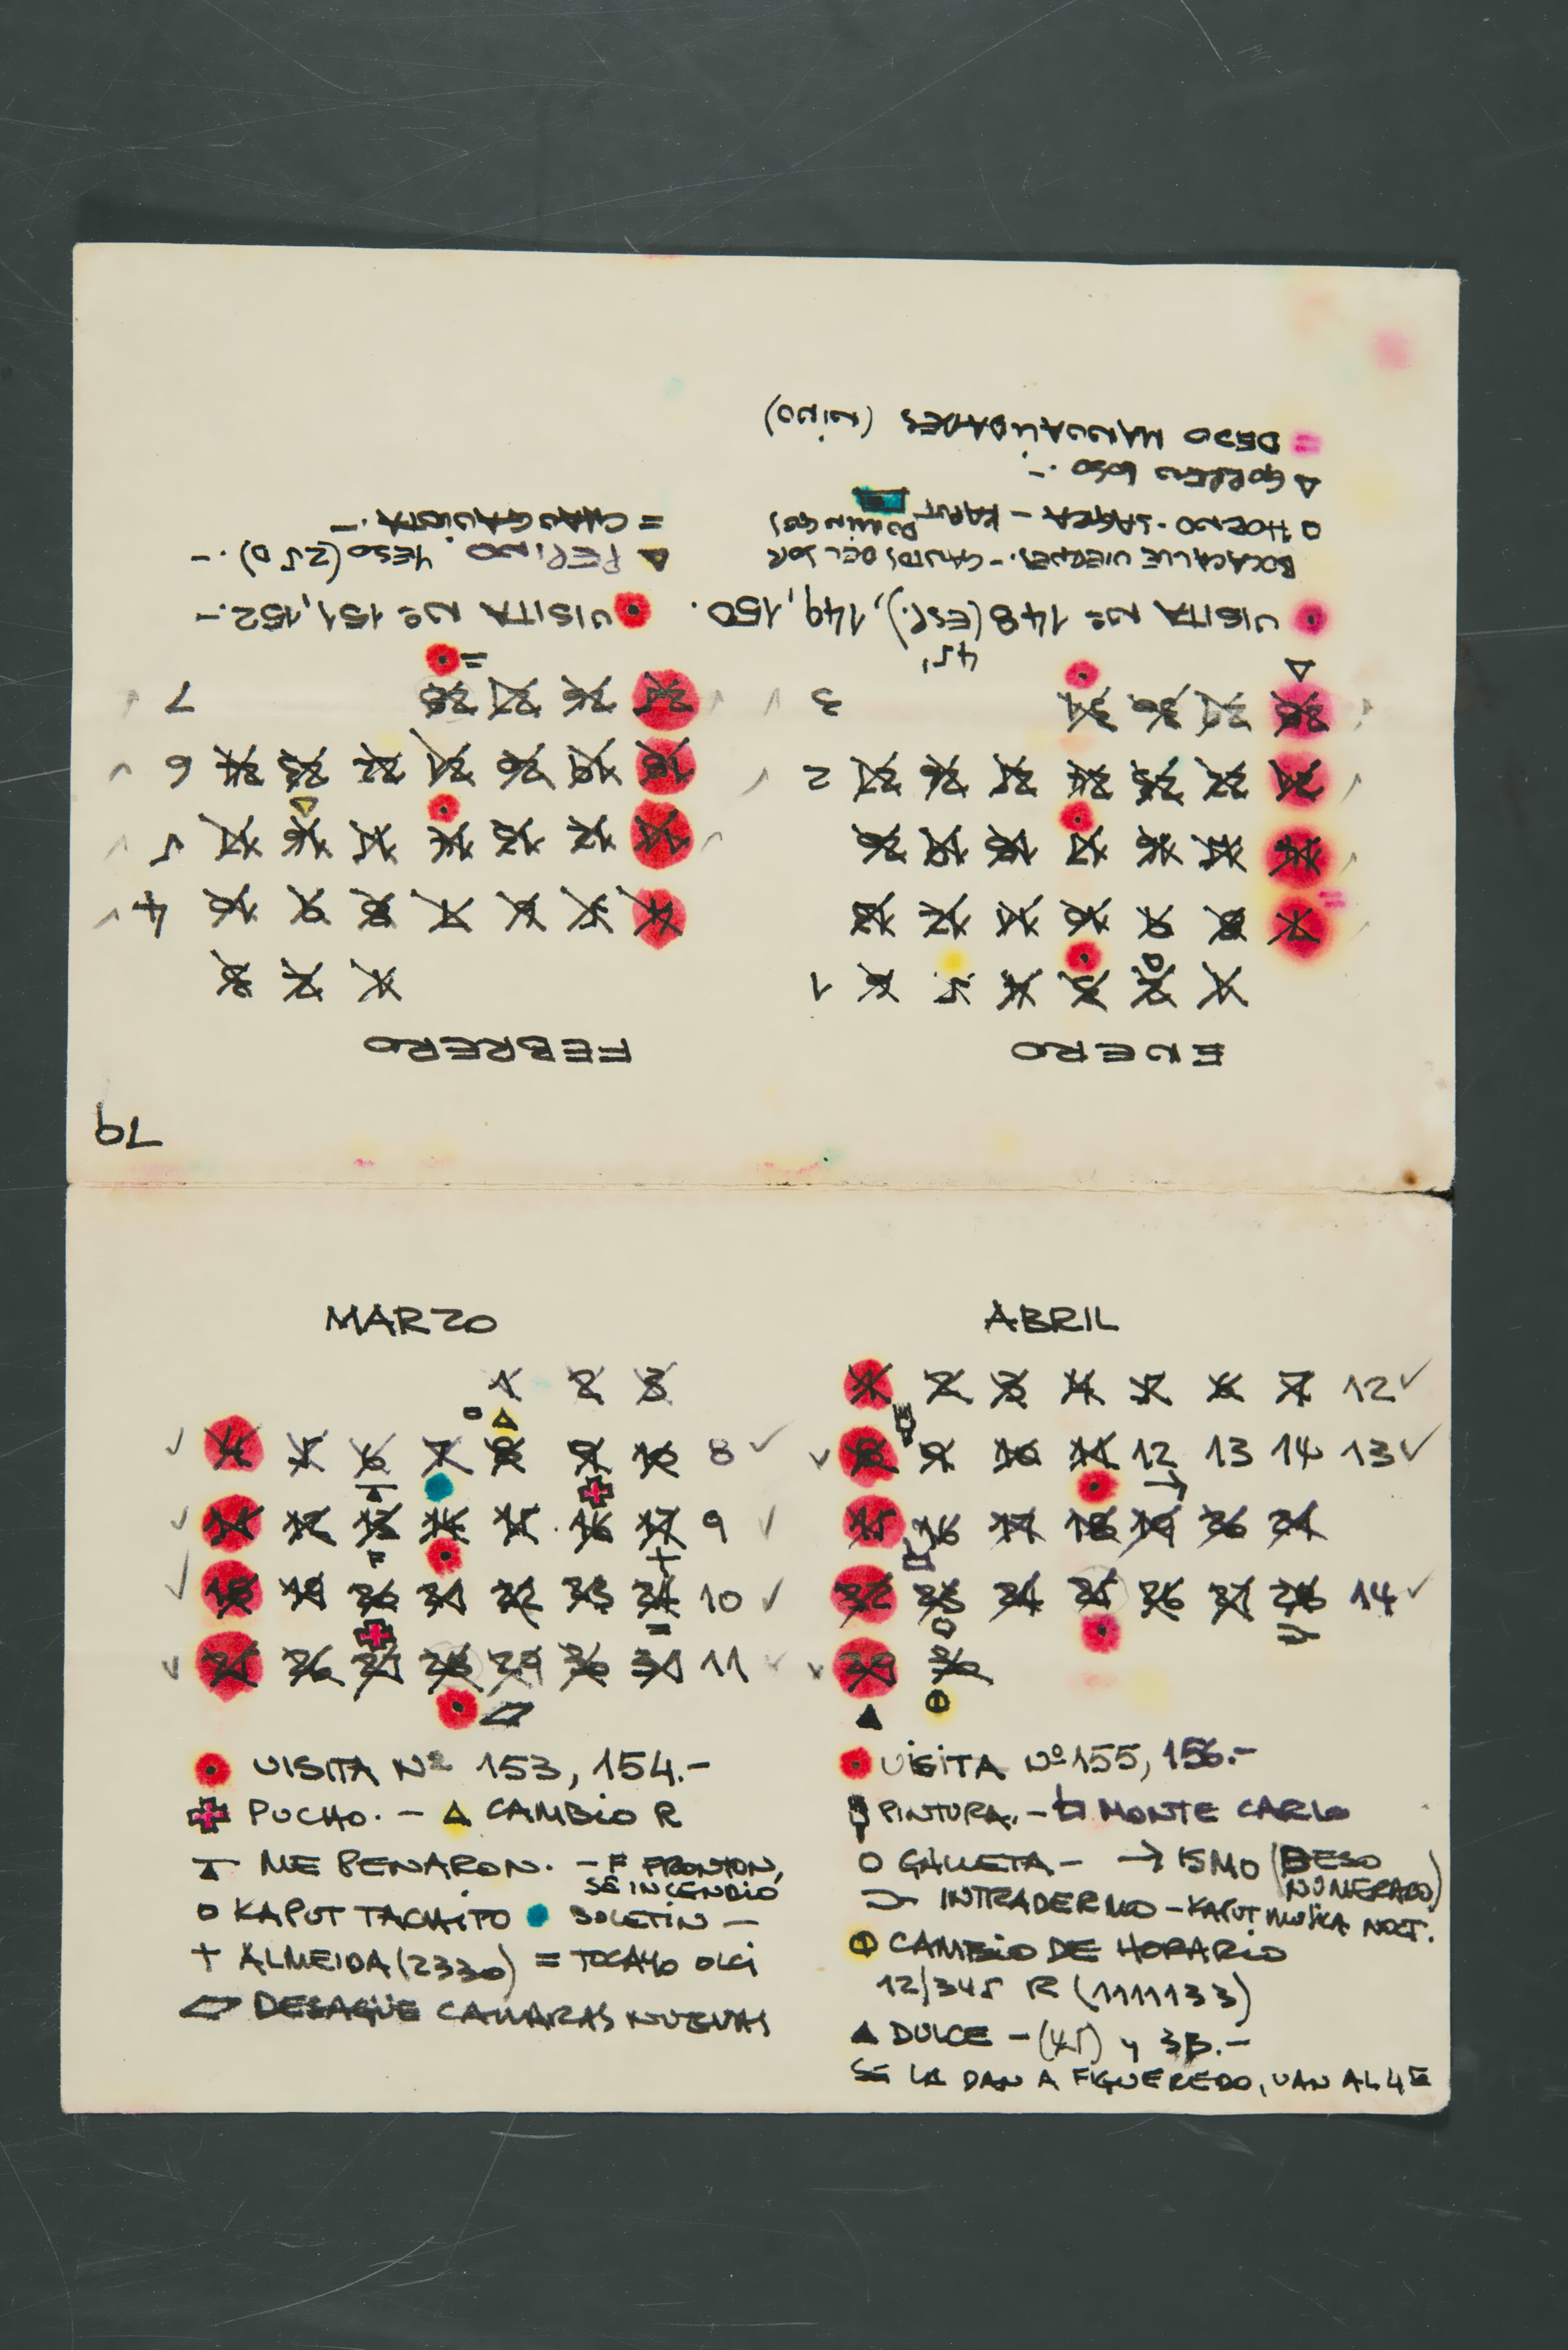 79
ENERO
1 2 3 4 5 6 1
7 8 9 10 11 12 13
14 15 16 17 18 19 20
21 22 23 24 25 26 27 2
28 29 30 31 3
VISITA Nº 148 (ESP.), 149, 150.
45'
BOCACALLE VIERNES. - GAUTOS DEL SOR
DOMINGOS
HORNO - - KAPUT
GORREN YOSO . -
= DEJO MANUALIDADES (NINO)
FEBRERO
1 2 3
4 5 6 7 8 9 10 4
11 12 13 14 15 16 17 5
18 19 20 21 22 23 24 6
25 26 27 28 7
=
VISITA Nº 151, 152.-
PEPINO. YESO (25 D) . -
= CHAU GAUVISTA . -
MARZO
1 2 3
4 5 6 7 8 9 10 8
11 12 13 14 15 16 17 9
F +
18 19 20 21 22 23 24 10
=
25 26 27 28 29 30 31 11
VISITA Nº 153, 154.-
PUCHO. - CAMBIO R
ME BENARON. - F FRONTON,
SE INCENDIO
KAPUT TACHITO BOLETIN -
+ ALMEIDA (2330) = TOCAYO OLCI
DESAGÜE CAMARAS NUEVAS
ABRIL
1 2 3 4 5 6 7 12
8 9 10 11 12 13 14 13
→
15 16 17 18 19 20 21
22 23 24 25 26 27 28 14
29 30
VISITA Nº 155, 156.-
PINTURA. - MONTE CARLO
GALLETA - → ISMO (BESO
NUMERADO)
INTRADERMO - KAPUT MUSICA NOCT.
CAMBIO DE HORARIO
12/345 R (1111133)
DULCE - (45) y 3B.-
SE LA DAN A FIGUEREDO, VAN AL 4º